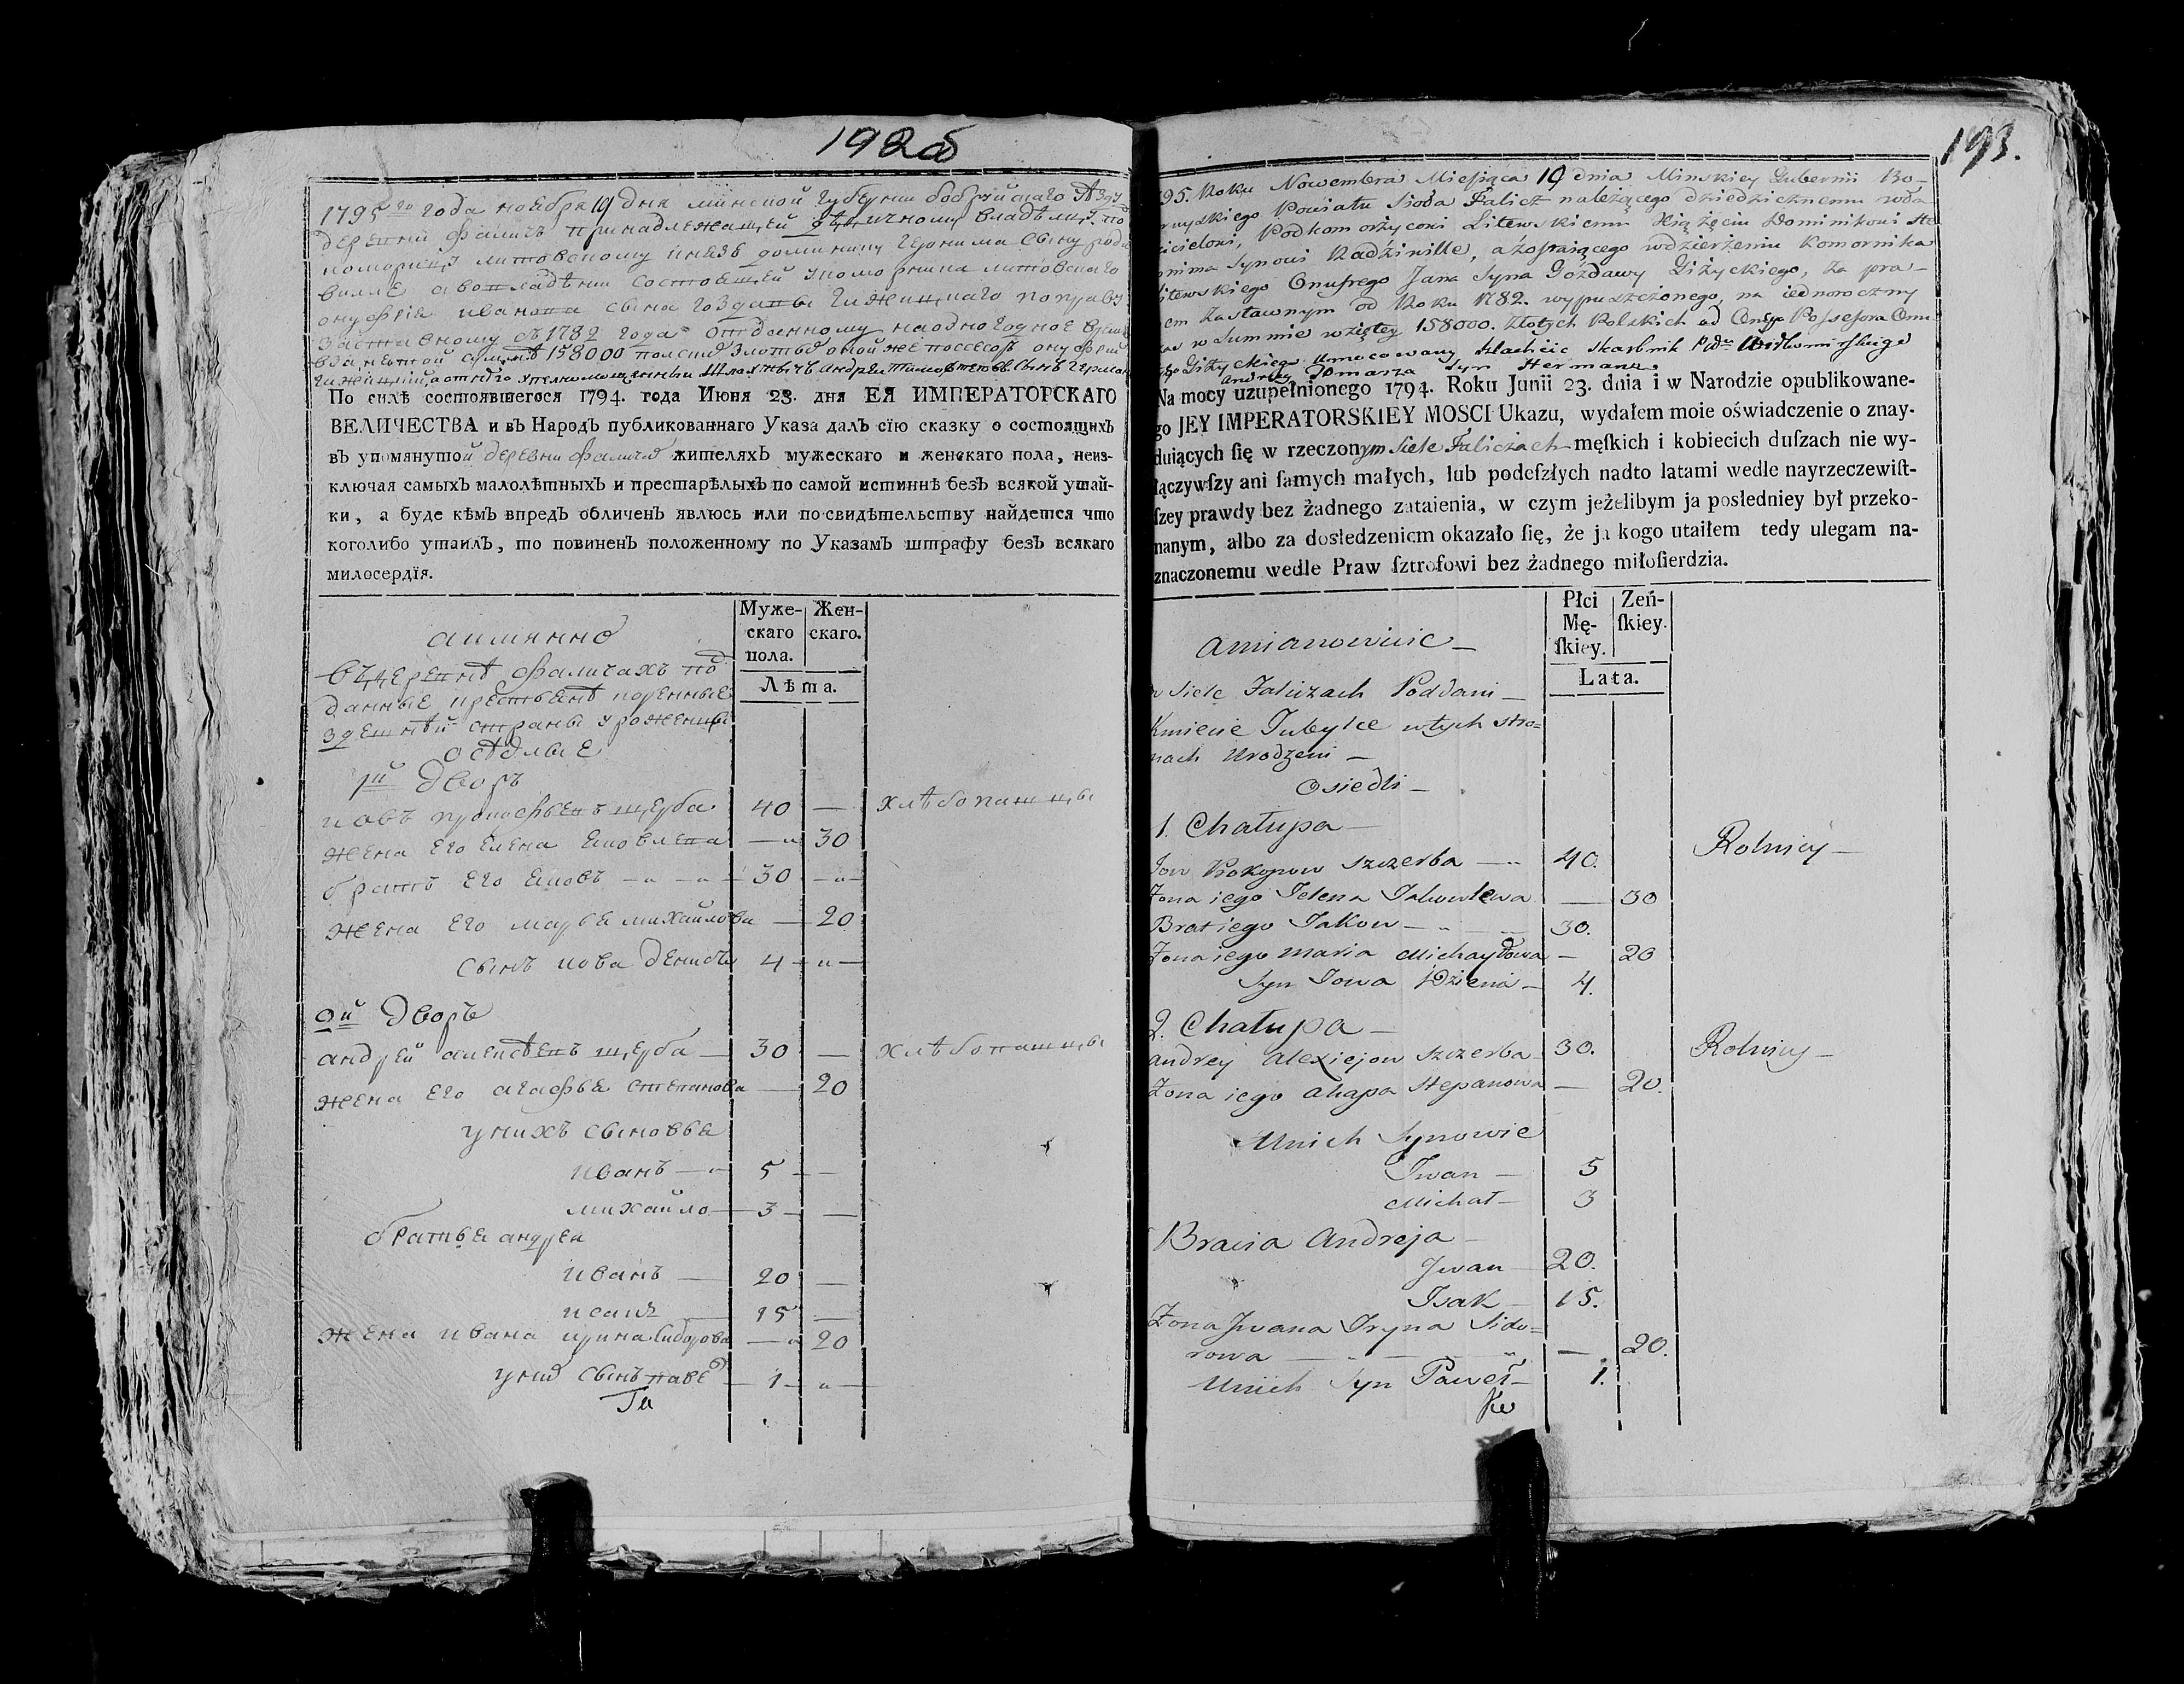 192б
1795го года ноября 19 дня минской губернии бобруйскаго
деревни Фаличъ принадлежащей владѣлцу
литовскому князь доминику геронима сыну
вилле а во владѣнии состоящей литовскаго
онуфрія ивана сына гоздавы гижицкаго по праву
заставному съ 1782 года отданному на одногодное
158000 полских злотых оной же поссесор онуфрей
По силѣ состоявшегося 1794. года Июня 23. дня ЕЯ ИМПЕРАТОРСКАГО
ВЕЛИЧЕСТВА и въ Народъ публикованнаго Указа далъ сію сказку о состоящихъ
въ упомянутой деревни Фаличах жителяхъ мужескаго и женскаго пола, неиз-
ключая самыхъ малолѣтныхъ и престарѣлыхъ по самой истиннѣ безъ всякой утай-
ки, а буде кѣмъ впредъ обличенъ явлюсь или по свидѣтельству найдется что
коголибо утаилъ, то повиненъ положенному по Указамъ штрафу безъ всякаго
милосердія.
Муже-скаго пола. Жен-скаго.
Лѣта.
а имянно
въ деревнѣ Фаличахъ под
данные крестьянѣ коренные
здешнѣй страны уроженцы
осѣдлые
1й Дворъ
иовъ прокофьевъ щерба 40 — хлѣбопашцы
жена его елена яковлева — 30
братъ его яковъ 30 —
жена его марья михайлова — 20
сынъ иова денисъ 4 —
2й Дворъ
андрей алексѣевъ щерба 30 — хлѣбопашцы
жена его агафья степанова — 20
у нихъ сыновья
иванъ — 5 —
михайло — 3 —
братья андрея
иванъ — 20 —
исакъ 15 —
жена ивана ирина сидорова — 20
у них сынъ павел 1 —
193.
95. Roku Nowembra Miesiąca 19 dnia Minskiey Gubernii Bo-
ruyskiego Powiatu Sioła Falicz należącego dziedzicznemu wła
icielowi, Podkomorzycowi Litewskiemu Xiążęciu Dominikowi He
onima Synowi Radziwille, a zostaiącego w dzierżeniu Komornika
itewskiego Onufrego Jana Syna Gozdawy Giżyckiego, za pra-
em zastawnym od Roku 1782. wypuszczonego, na iednoroczny
w Summie wziętey 158000. Złotych Polskich od Possesora Onu
Giżyckiego Umocowany Szlachcic Skarbnik
Andrzey Tomasza Syn Herman
Na mocy uzupełnionego 1794. Roku Junii 23. dnia i w Narodzie opublikowane-
go JEY IMPERATORSKIEY MOSCI Ukazu, wydałem moie oświadczenie o znay-
duiących ſię w rzeczonym Siele Faliczach męſkich i kobiecich duſzach nie wy-
łączywſzy ani ſamych małych, lub podeſzłych nadto latami wedle nayrzeczewiſt-
ſzey prawdy bez żadnego zataienia, w czym jeżelibym ja posledniey był przeko-
nanym, albo za dosledzeniem okazało ſię, że ja kogo utaiłem tedy ulegam na-
znaczonemu wedle Praw ſztrofowi bez żadnego miłoſierdzia.
Płci Mę-ſkiey. Zeń-ſkiey.
Lata.
a mianowicie —
w Siele Faliczach Poddani —
Kmiecie Tubylce w tych stro=
nach Urodzeni —
Osiedli —
1. Chałupa —
Jow Prokopow Szczerba — 40. Rolnicy —
Zona iego Jelena Jakowlewa — 30
Brat iego Jakow — 30.
Zona iego Maria Michayłowa — 20
Syn Jowa Dzienis — 4.
2. Chałupa —
Andrey Alexiejow Szczerba 30. Rolnicy —
Zona iego Ahapa Stepanowa — 20.
U nich Synowie
Jwan — 5
Michał — 3
Bracia Andreja —
Jwan 20.
Isak — 15.
Zona Jwana Iryna Sido=
rowa — 20.
U nich Syn Paweł — 1.